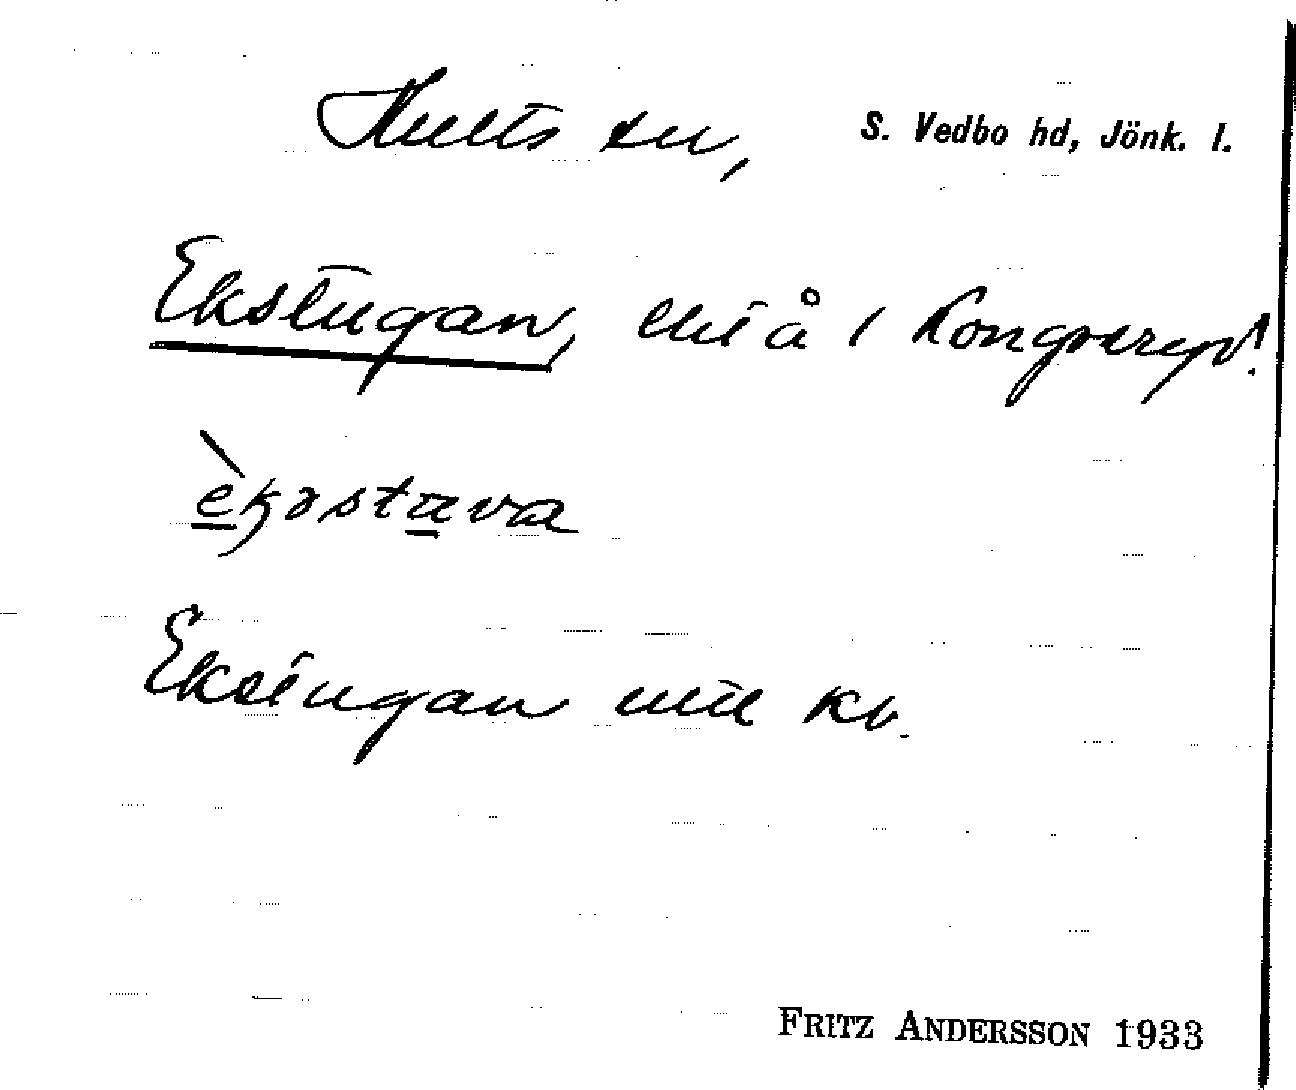 Hults sn, S. Vedbo hd, Jönk. l.
Ekstugan, ent å / Kongseryd!
èkǝstava
Ekstugan utıl kv.
FRITZ ANDERSSON 1933